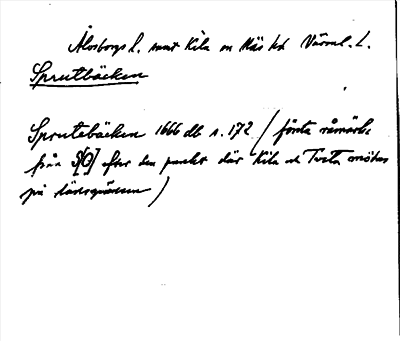 Älvsborgs l. samt Kila sn Näs hd Värml. L.
Sprutbäcken
Sprutebäcken 1666 db s. 172 (första råmärke
från SO efter den punkt där Kila och Tveta mötas
på länsgränsen)